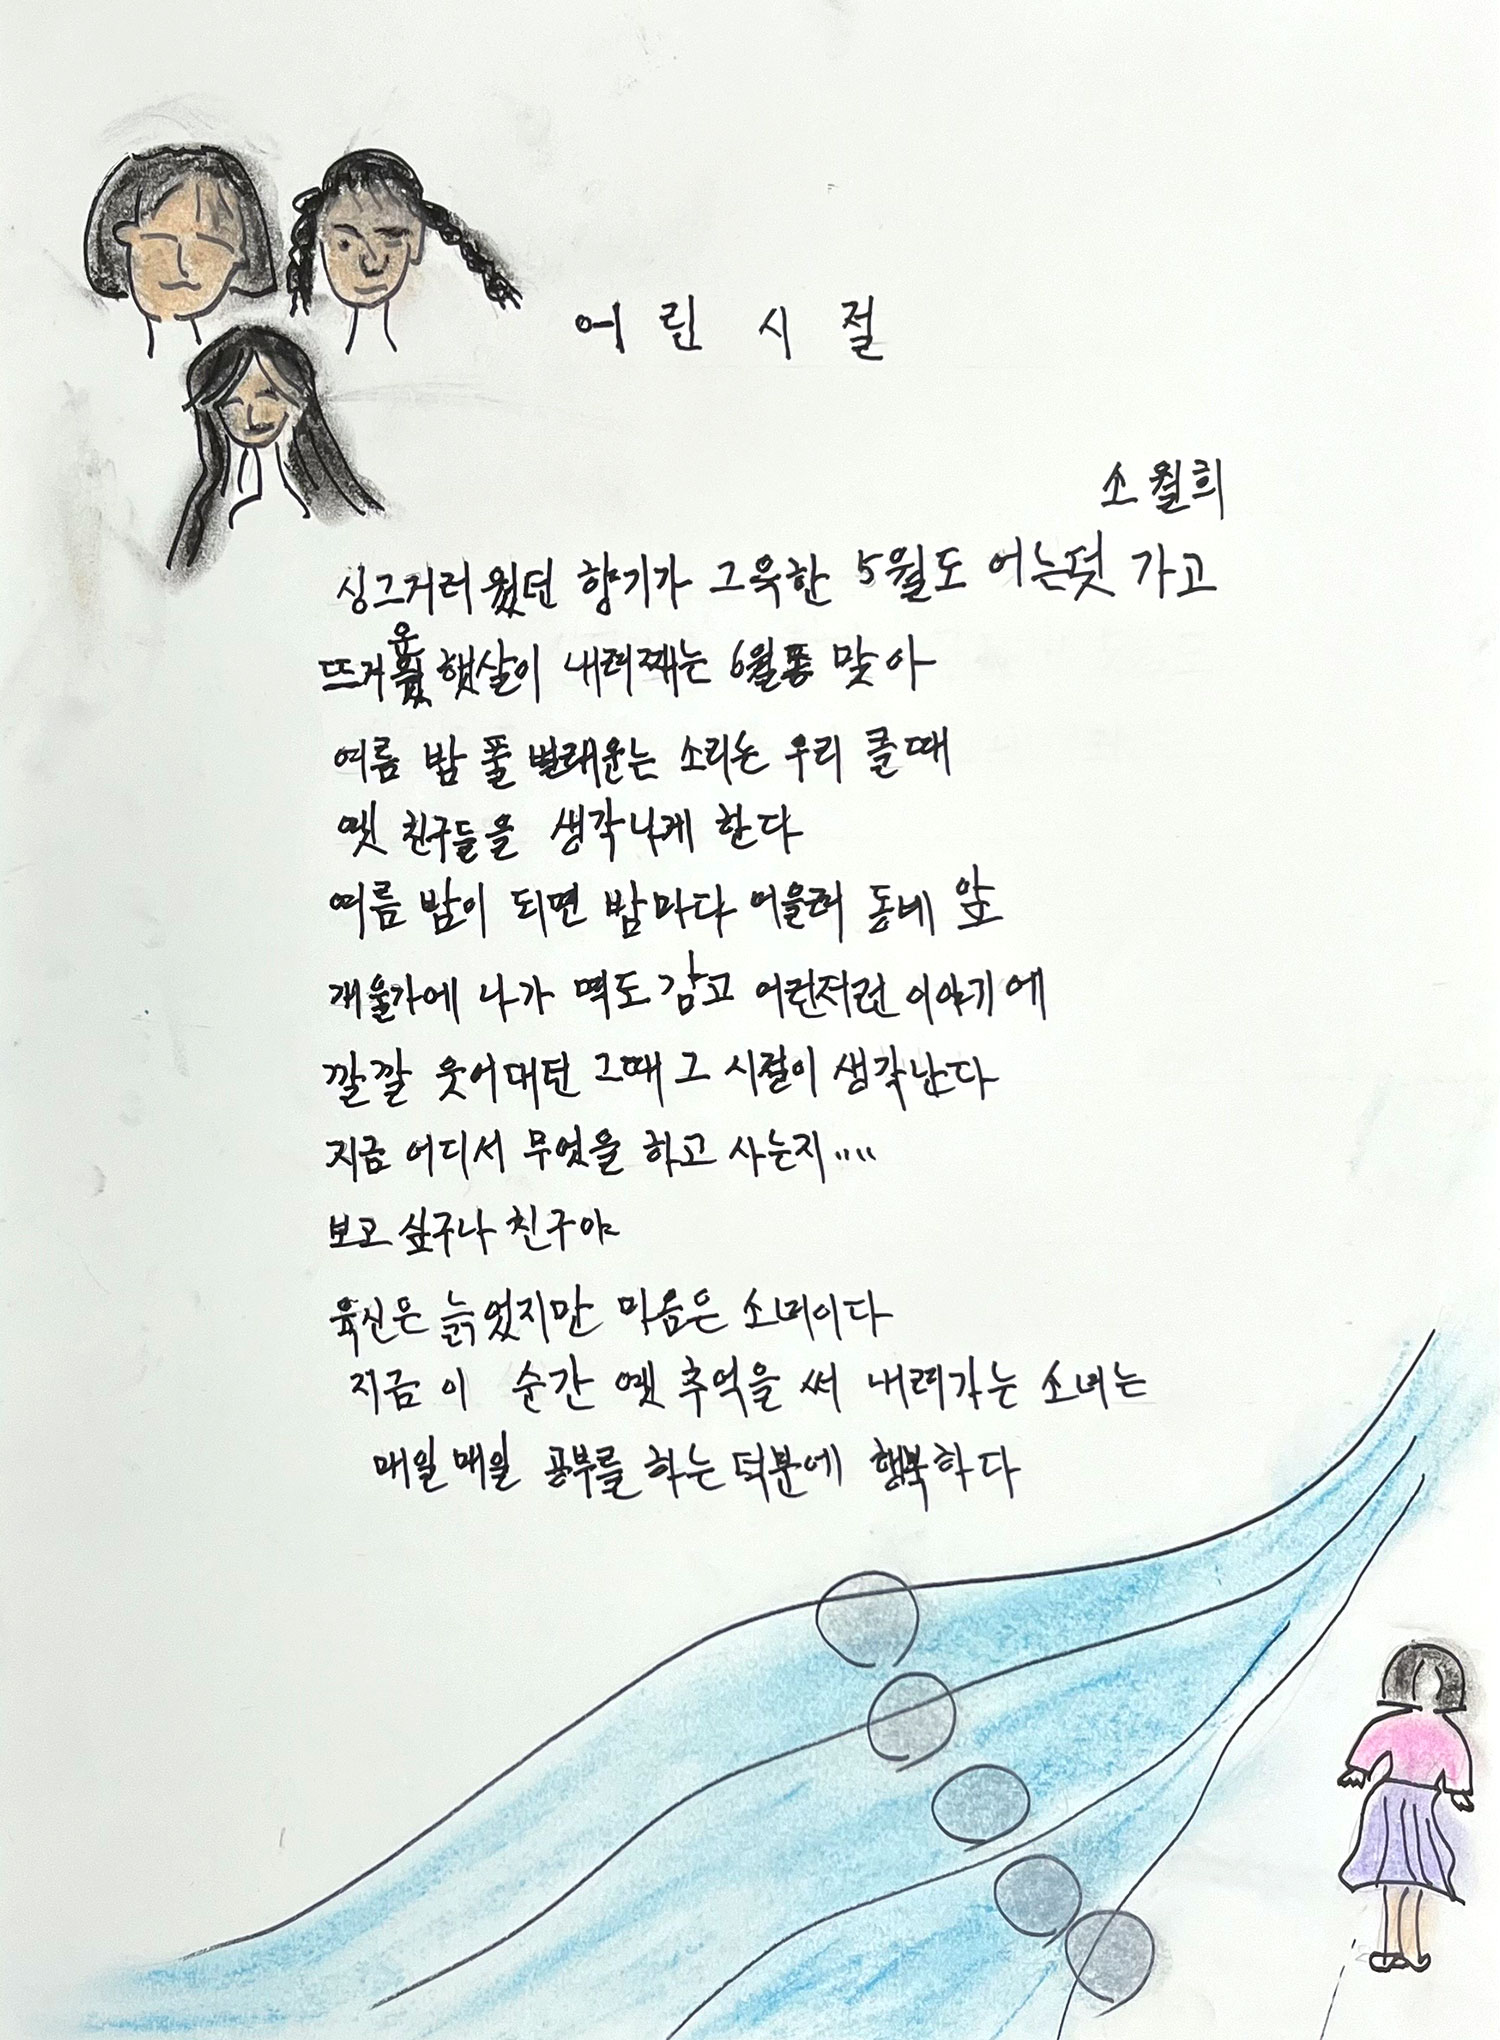 어린시절
소월희
싱그러러웠던 향기가 그윽한 5월도 어는덧 가고
뜨거운 햇살이 내려째는 6월을 맞아
여름 밤 풀 벌래운는 소리는 우리 클때
옛 친구들을 생각나게 한다
여름 밤이 되면 밤마다 어울려 동네 앞
개울가에 나가 멱도 감고 어런저런 이야기에
깔깔 웃어대던 그때 그 시절이 생각난다
지금 어디서 무엇을 하고 사는지....
보고 싶구나 친구야
육신은 늙었지만 마음은 소녀이다
지금 이 순간 옛 추억을 써 내려가는 소녀는
매일매일 공부를 하는 덕분에 행복하다